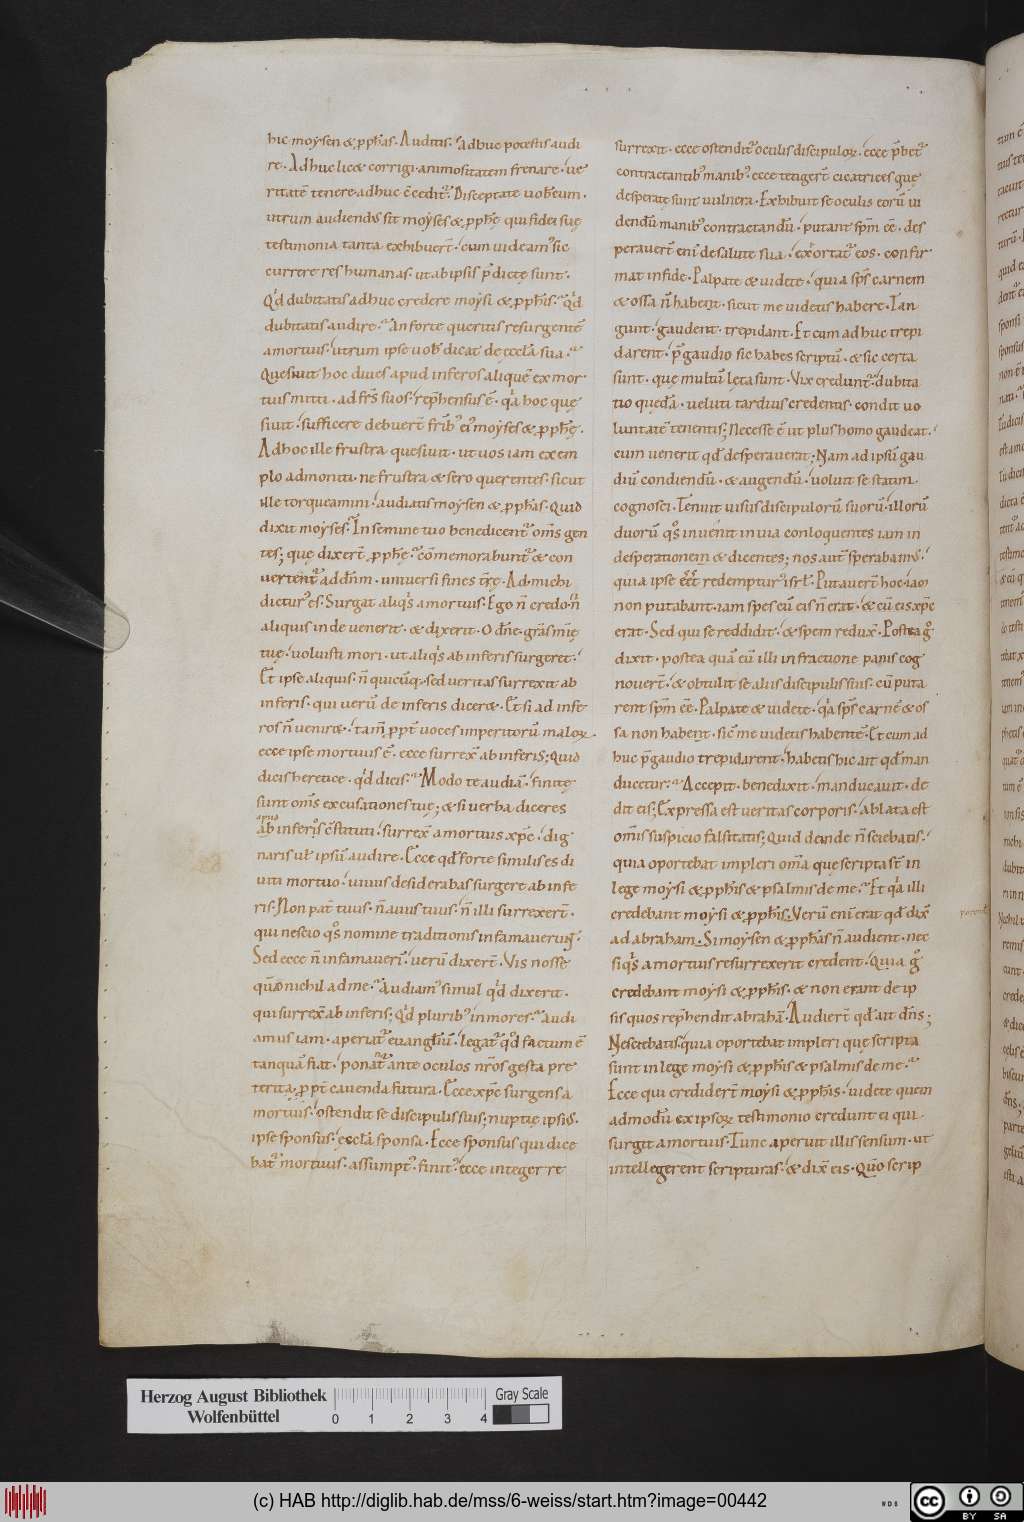 hic moysen & ꝓph̄as. Auditis. Adhuc potestis audi
re. Adhuc lic& corrigi. animositatem frenare. ue
ritatē tenere. adhuc c̄cedit᷑. Disceptate uobscum.
utrum audiendus sit moyses & ꝓph̄ę qui fidei suę
testimonia tanta exhibuer̄t. cum uideam᷒ sic
currere res humanas. ut ab ipsis p̄dictę sunt.
Qͥd dubitatis adhuc credere moysi & ꝓph̄is. qͥd
dubitatis audire. An forte queritis resurgentē
a mortuis. utrum ipse uob̄ dicat de ęccl̄a sua.
Quesiuit hoc diues apud inferos aliquē ex mor
tuis mitti. ad fr̄s suos. rep̄hensus ē. qͥa hoc quę
siuit. sufficere debuer̄t frīb᷒ ei᷒ moyses & ꝓph̄ę.
Ad hoc ille frustra quesiuit. ut uos iam exem
plo admoniti. ne frustra & sero querentes. sicut
ille torqueamini. audiatis moysen & ꝓph̄as. Quid
dixit moyses. In semine tuo benedicent᷑ om̄s gen
tes; quę dixer̄t ꝓph̄ę. cōmemorabunt᷑ & con
uertent᷑ ad dn̄m. uniuersi fines t̄rę. Ad michi
dictur᷒ es. Surgat aliqͥs a mortuis. Ego n̄ credo. n̄
aliquis inde uenerit. & dixerit. O dn̄e. grās mīę
tuę. uoluisti mori. ut aliqͥs ab inferis surgeret.
Et ipse aliquis. n̄ quicūq;. sed ueritas surrexit ab
inferis. qui uerū de inferis dicer&. Et si ad infe
ros n̄ uenir&. tam̄ ꝓpt̄ uoces imperitorū maloꝝ.
ecce ipse mortuus ē. ecce surrex̄ ab inferis; Quid
dicis heretice. qͥd dicis. Modo te audiā. finitę
sunt om̄s excusationes tuę; & si uerba diceres
apud
ab inferos c̄stituti. surrex̄ a mortuis xp̄c. dig
naris ul̄ ipsū audire. Ecce qd̄ forte similis es di
uiti mortuo. unius desiderabas surgere ab infe
ris. Non pat̄ tuus. n̄ auus tuus. n̄ illi surrexer̄t.
qui nescio qͦs nomine traditionis infamauerunt.
Sed ecce n̄ infamauer̄. uerū dixer̄t. Vis nosse
qd̄ nichil ad me. Audiam᷒ simul qͥd dixerit.
qui surrex̄ ab inferis; Qͥd plurib᷒ inmores. audi
amus iam. aperiat᷑ euangl̄iū. legat᷑ qͦd factum ē
tanquā fiat. ponat᷑ ante oculos nr̄os gesta pre
terita. ꝓpt̄ cauenda futura. Ecce xp̄c surgens a
mortuis. ostendit se discipulis suis; nuptię ipsius.
ipse sponsus. ęccl̄a sponsa. Ecce sponsus qui dice
bat᷑ mortuus. assumpt᷒. finit᷒. ecce integer re
surrexit. ecce ostendit᷑ oculis discipuloꝝ. ecce p̄bet᷑
contractantib᷒ manib᷒. ecce tetiger̄t cicatrices quę
desperatę sunt uulnera. Exhibuit se oculis eorū ui
dendū manib᷒ contractandū. putant sp̄m ēē. des
perauer̄t enī de salute sua. exortat᷑ eos. confir
mat in fide. Palpate & uidete. quia sp̄s carnem
& ossa n̄ habent. sicut me uidetis habere. Tan
gunt. gaudent. trepidant. Et cum adhuc trepi
darent. p̄ gaudio sic habes scriptū. & sic certa
sunt. quę multū lęta sunt. Vix credunt᷑. dubita
tio quedā. ueluti tardius credentis. condit uo
luntatē tenentis; Necesse ē ut plus homo gaudeat.
cum uenerit qd̄ desperauerat; Nam ad ipsū gau
diū condiendū. & augendū. uoluit se statim
cognosci. Tenuit uisus discipulorū suorū. illorū
duorū qͦs inuenit in uia conloquentes iam in
desperationem & dicentes; nos aut̄ sperabamus.
quia ipse ēēt redemptur᷒ isrl̄. Putauer̄t hoc. iam
non putabant. iam spes cū eis n̄ erat. & cū eis xp̄c
erat. Sed qui se reddidit. & spem redux̄. Postea gͦ
dixit. postea quā eū illi in fractione panis cog
nouer̄t. & obtulit se aliis discipulis suis. cū puta
rent sp̄m ēē. Palpate & uidete. qͥa sp̄s carnē & os
sa non habent. sic̄ me uidetis habentē. Et cum ad
huc p̄ gaudio trepidarent. habetis hic ait qd̄ man
ducetur. Accepit. benedixit. manducauit. de
dit eis; Expressa est ueritas corporis. ablata est
omīs suspicio falsitatis; Quid deinde n̄ sciebatis.
quia oportebat impleri om̄a quę scripta sr̄ in
lege moysi & ꝓph̄is & psalmis de me. Et qͥa illi
credebant moysi & ꝓph̄is. Verū enī erat qd̄ dix̄
ad abraham. Si moysen & ꝓph̄as n̄ audient. nec
si qͥs a mortuis resurrexerit credent. Quia gͦ
credebant moysi & ꝓph̄is. & non erant de ip
sis quos rep̄hendit abrahā. Audier̄t qd̄ ait dn̄s;
Nesciebatis. quia oportebat impleri quę scripta
sunt in lege moysi & ꝓph̄is & psalmis de me.
Ecce qui credider̄t moysi & ꝓph̄is. uidete quem
admodū ex ipsoꝝ testimonio credunt ei qui
surgit a mortuis. Tunc aperuit illis sensum. ut
intellegerent scripturas. & dix̄ eis. Qm̄ scrip
Herzog August Bibliothek
Wolfenbüttel
0 1 2 3 4
Gray Scale
(c) HAB http://diglib.hab.de/mss/6-weiss/start.htm?image=00442
WDB
cc
BY SA